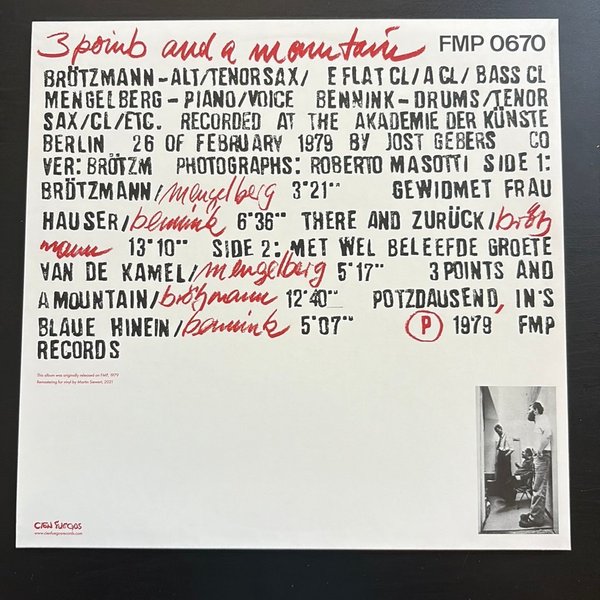 3 points and a mountain FMP 0670
BRÖTZMANN-ALT/TENORSAX/ E FLAT CL/A CL/ BASS CL
MENGELBERG-PIANO/VOICE BENNINK-DRUMS/TENOR
SAX/CL/ETC. RECORDED AT THE AKADEMIE DER KÜNSTE
BERLIN 26 OF FEBRUARY 1979 BY JOST GEBERS CO
VER: BRÖTZM PHOTOGRAPHS: ROBERTO MASOTTI SIDE 1:
BRÖTZMANN/mengelberg 3'21"" GEWIDMET FRAU
HAUSER/bennink 6'36"" THERE AND ZURÜCK/brötz
mann 13'10"" SIDE 2: MET WEL BELEEFDE GROETE
VAN DE KAMEL/mengelberg 5'17"" 3 POINTS AND
A MOUNTAIN/brötzmann 12'40"" POTZDAUSEND, IN'S
BLAUE HINEIN/bennink 5'07"" P 1979 FMP
RECORDS
This album was originally released on FMP, 1979
Remastering for vinyl by Martin Siewert, 2021
CIEN FUEGOS
www.cienfuegosrecords.com